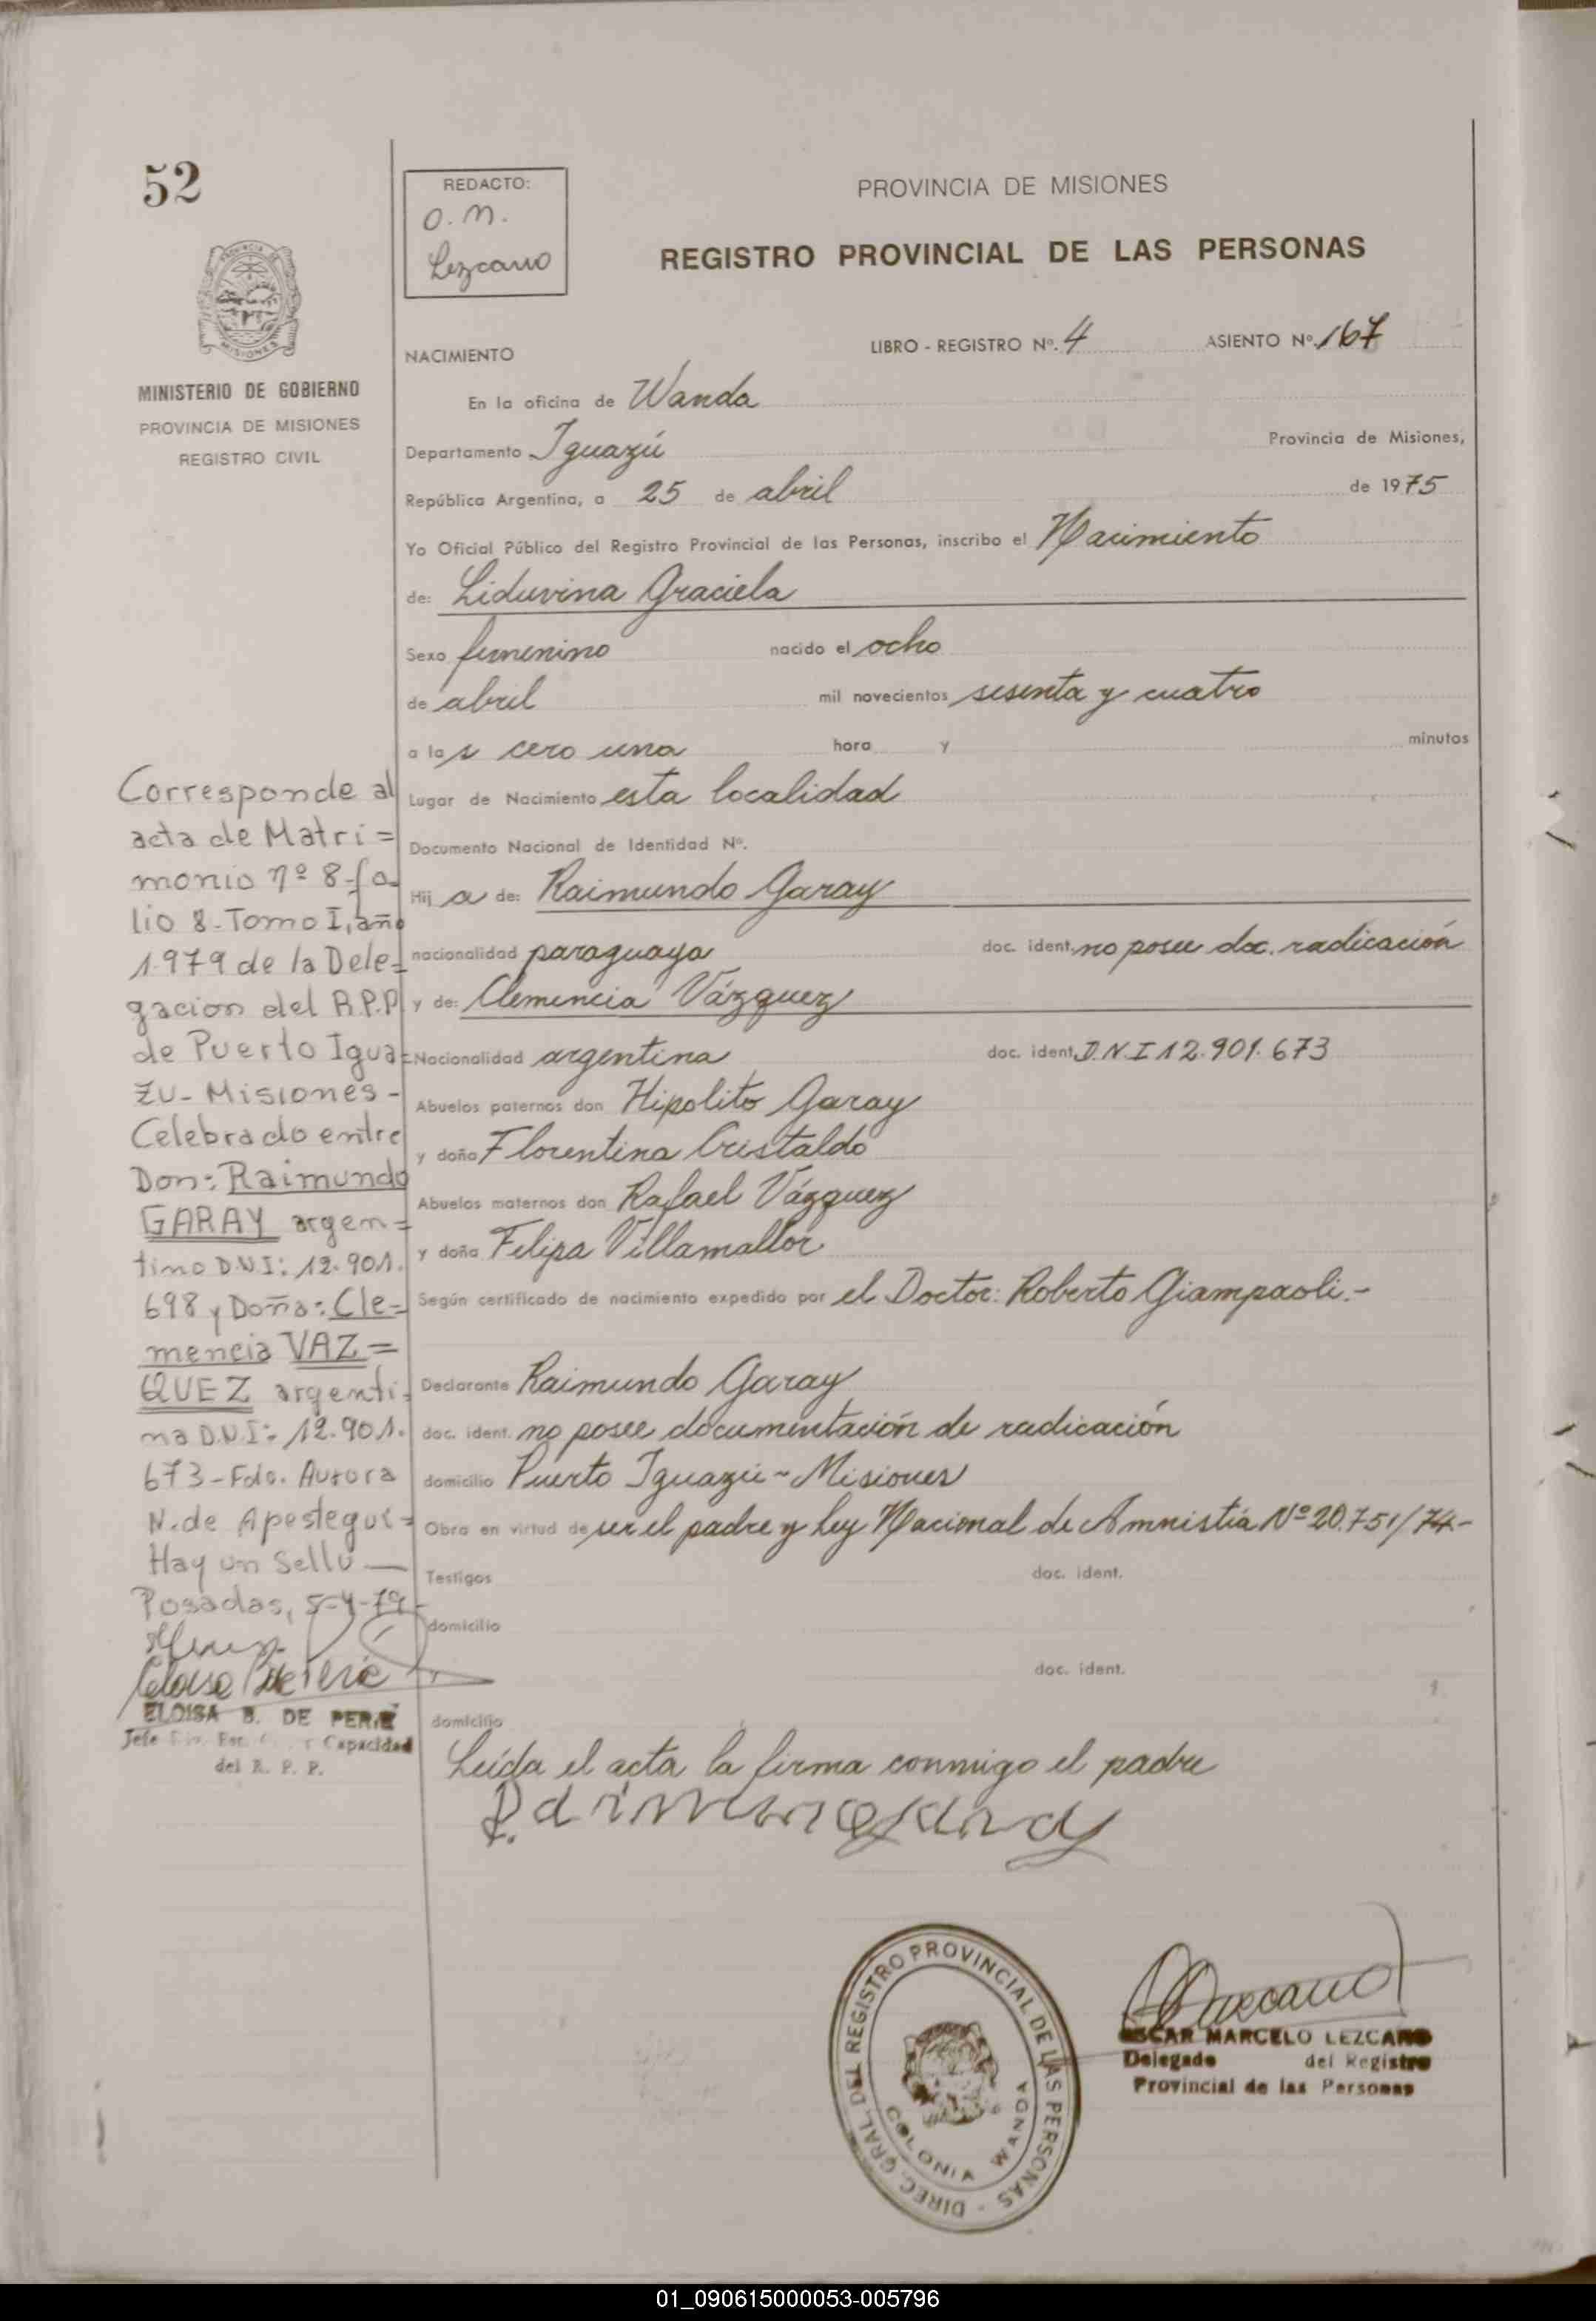 52
REDACTO:
O. M.
Lezcano
PROVINCIA DE MISIONES
REGISTRO PROVINCIAL DE LAS PERSONAS
PROVINCIA DE
MISIONES
MINISTERIO DE GOBIERNO
PROVINCIA DE MISIONES
REGISTRO CIVIL
NACIMIENTO
LIBRO - REGISTRO Nº. 4 ASIENTO Nº. 167
En la oficina de Wanda
Departamento Iguazú Provincia de Misiones,
República Argentina, a 25 de abril de 1975
Yo Oficial Público del Registro Provincial de las Personas, inscribo el Nacimiento
de: Liduvina Graciela
Sexo femenino nacido el ocho
de abril mil novecientos sesenta y cuatro
a las cero una hora y minutos
Lugar de Nacimiento esta localidad
Documento Nacional de Identidad Nº.
Hija de: Raimundo Garay
nacionalidad paraguaya doc. ident. no posee doc. radicación
y de: Clemencia Vázquez
Nacionalidad argentina doc. ident. D.N.I 12.901.673
Abuelos paternos don Hipolito Garay
y doña Florentina Cristaldo
Abuelos maternos don Rafael Vázquez
y doña Felipa Villamallor
Según certificado de nacimiento expedido por el Doctor: Roberto Giampaoli.-
Declarante Raimundo Garay
doc. ident. no posee documentación de radicación
domicilio Puerto Iguazú - Misiones
Obra en virtud de ser el padre y Ley Nacional de Amnistía Nº 20.751/74-
Testigos doc. ident.
domicilio
doc. ident.
domicilio
Leída el acta la firma conmigo el padre
Corresponde al
acta de Matri=
monio nº 8-fo-
lio 8-Tomo I, año
1.979 de la Dele=
gacion del R.P.P
de Puerto Igua=
zu- Misiones-
Celebrado entre
Don: Raimundo
GARAY argen=
tino D.N.I: 12.901.
698 y Doña: Cle=
mencia VAZ=
QUEZ argenti-
na D.N.I: 12.901.
673-Fdo. Aurora
N. de Apestegui=
Hay un Sello
Posadas, 5-4-79-
ELOISA B. DE PERIE
Jefe Capacidad
del R. P. P.
DIREC. GRAL. DEL REGISTRO PROVINCIAL DE LAS PERSONAS -
COLONIA WANDA
OSCAR MARCELO LEZCANO
Delegado del Registro
Provincial de las Personas
01_090615000053-005796